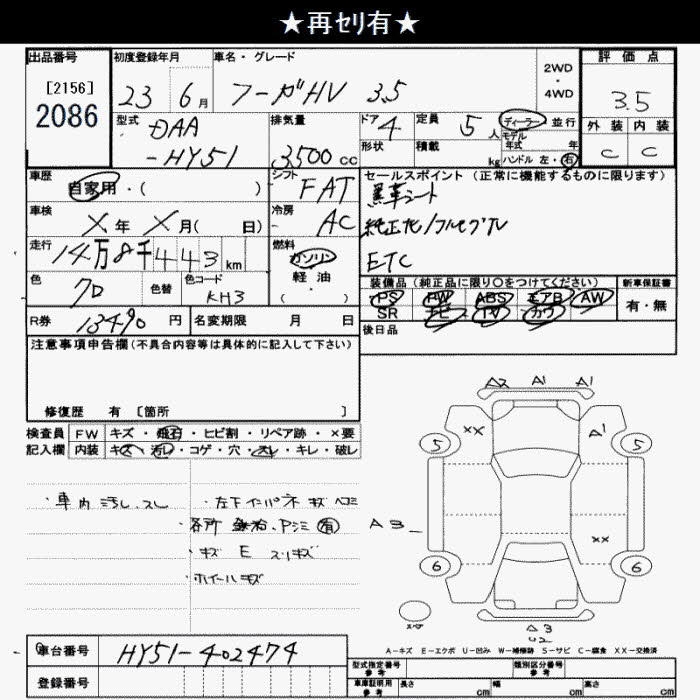 ★再セリ有★
出品番号
[2156]
2086
初度登録年月
23 6月
車名・グレード
フーガHV 3.5
2WD
・
4WD
評価点
3.5
外装 内装
C C
型式
DAA
-HY51
排気量
3500 cc
ドア 4
形状
定員 5人
積載 kg
ディーラー 並行
モデル
年式 年
ハンドル 左・右
車歴
自家用・( )
シフト
FAT
車検
X年 X月( 日)
冷房
AC
走行
14万8千443 km
燃料
ガソリン
軽油
( ・ )
色
クロ
色替
色コード
KH3
R券 13490 円
名変期限 月 日
セールスポイント(正常に機能するものに限ります)
黒革シート
純正ナビ/フルセグTV
ETC
装備品(純正品に限り○をつけてください)
PS PW ABS エアB AW
SR ナビ TV カワ
新車保証書
有・無
後日品
注意事項申告欄(不具合内容等は具体的に記入して下さい)
修復歴 有 [箇所 ]
検査員
記入欄
FW キズ・飛石・ヒビ割・リペア跡・×要
内装 キズ・汚レ・コゲ・穴・スレ・キレ・破レ
・車内汚レ、スレ
・左下インパネ キズ ヘコミ
・各所 P.シミ 有
・キズ E スリキズ
・ホイールキズ
A2 A1 A1
XX
A1
5 5
A3
XX
6 6
A3
U2
A-キズ E-エクボ U-凹み W-補修跡 S-サビ C-腐食 XX-交換済
車台番号 HY51-402474
登録番号
型式指定番号
参考
類別区分番号
参考
車庫証明用
参考
長さ cm
幅 cm
高さ cm